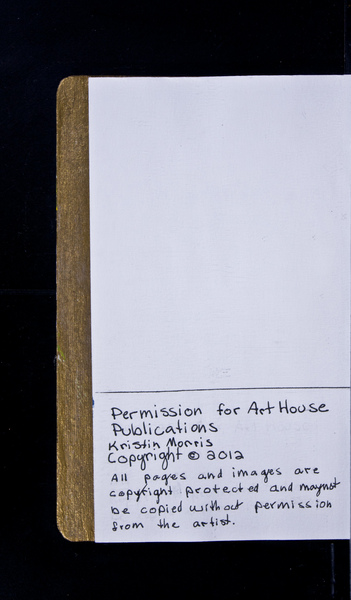 Permission for Art House
Publications
Kristin Morris
Copyright © 2012
All pages and images are
copyright protected and maynot
be copied without permission
from the artist.